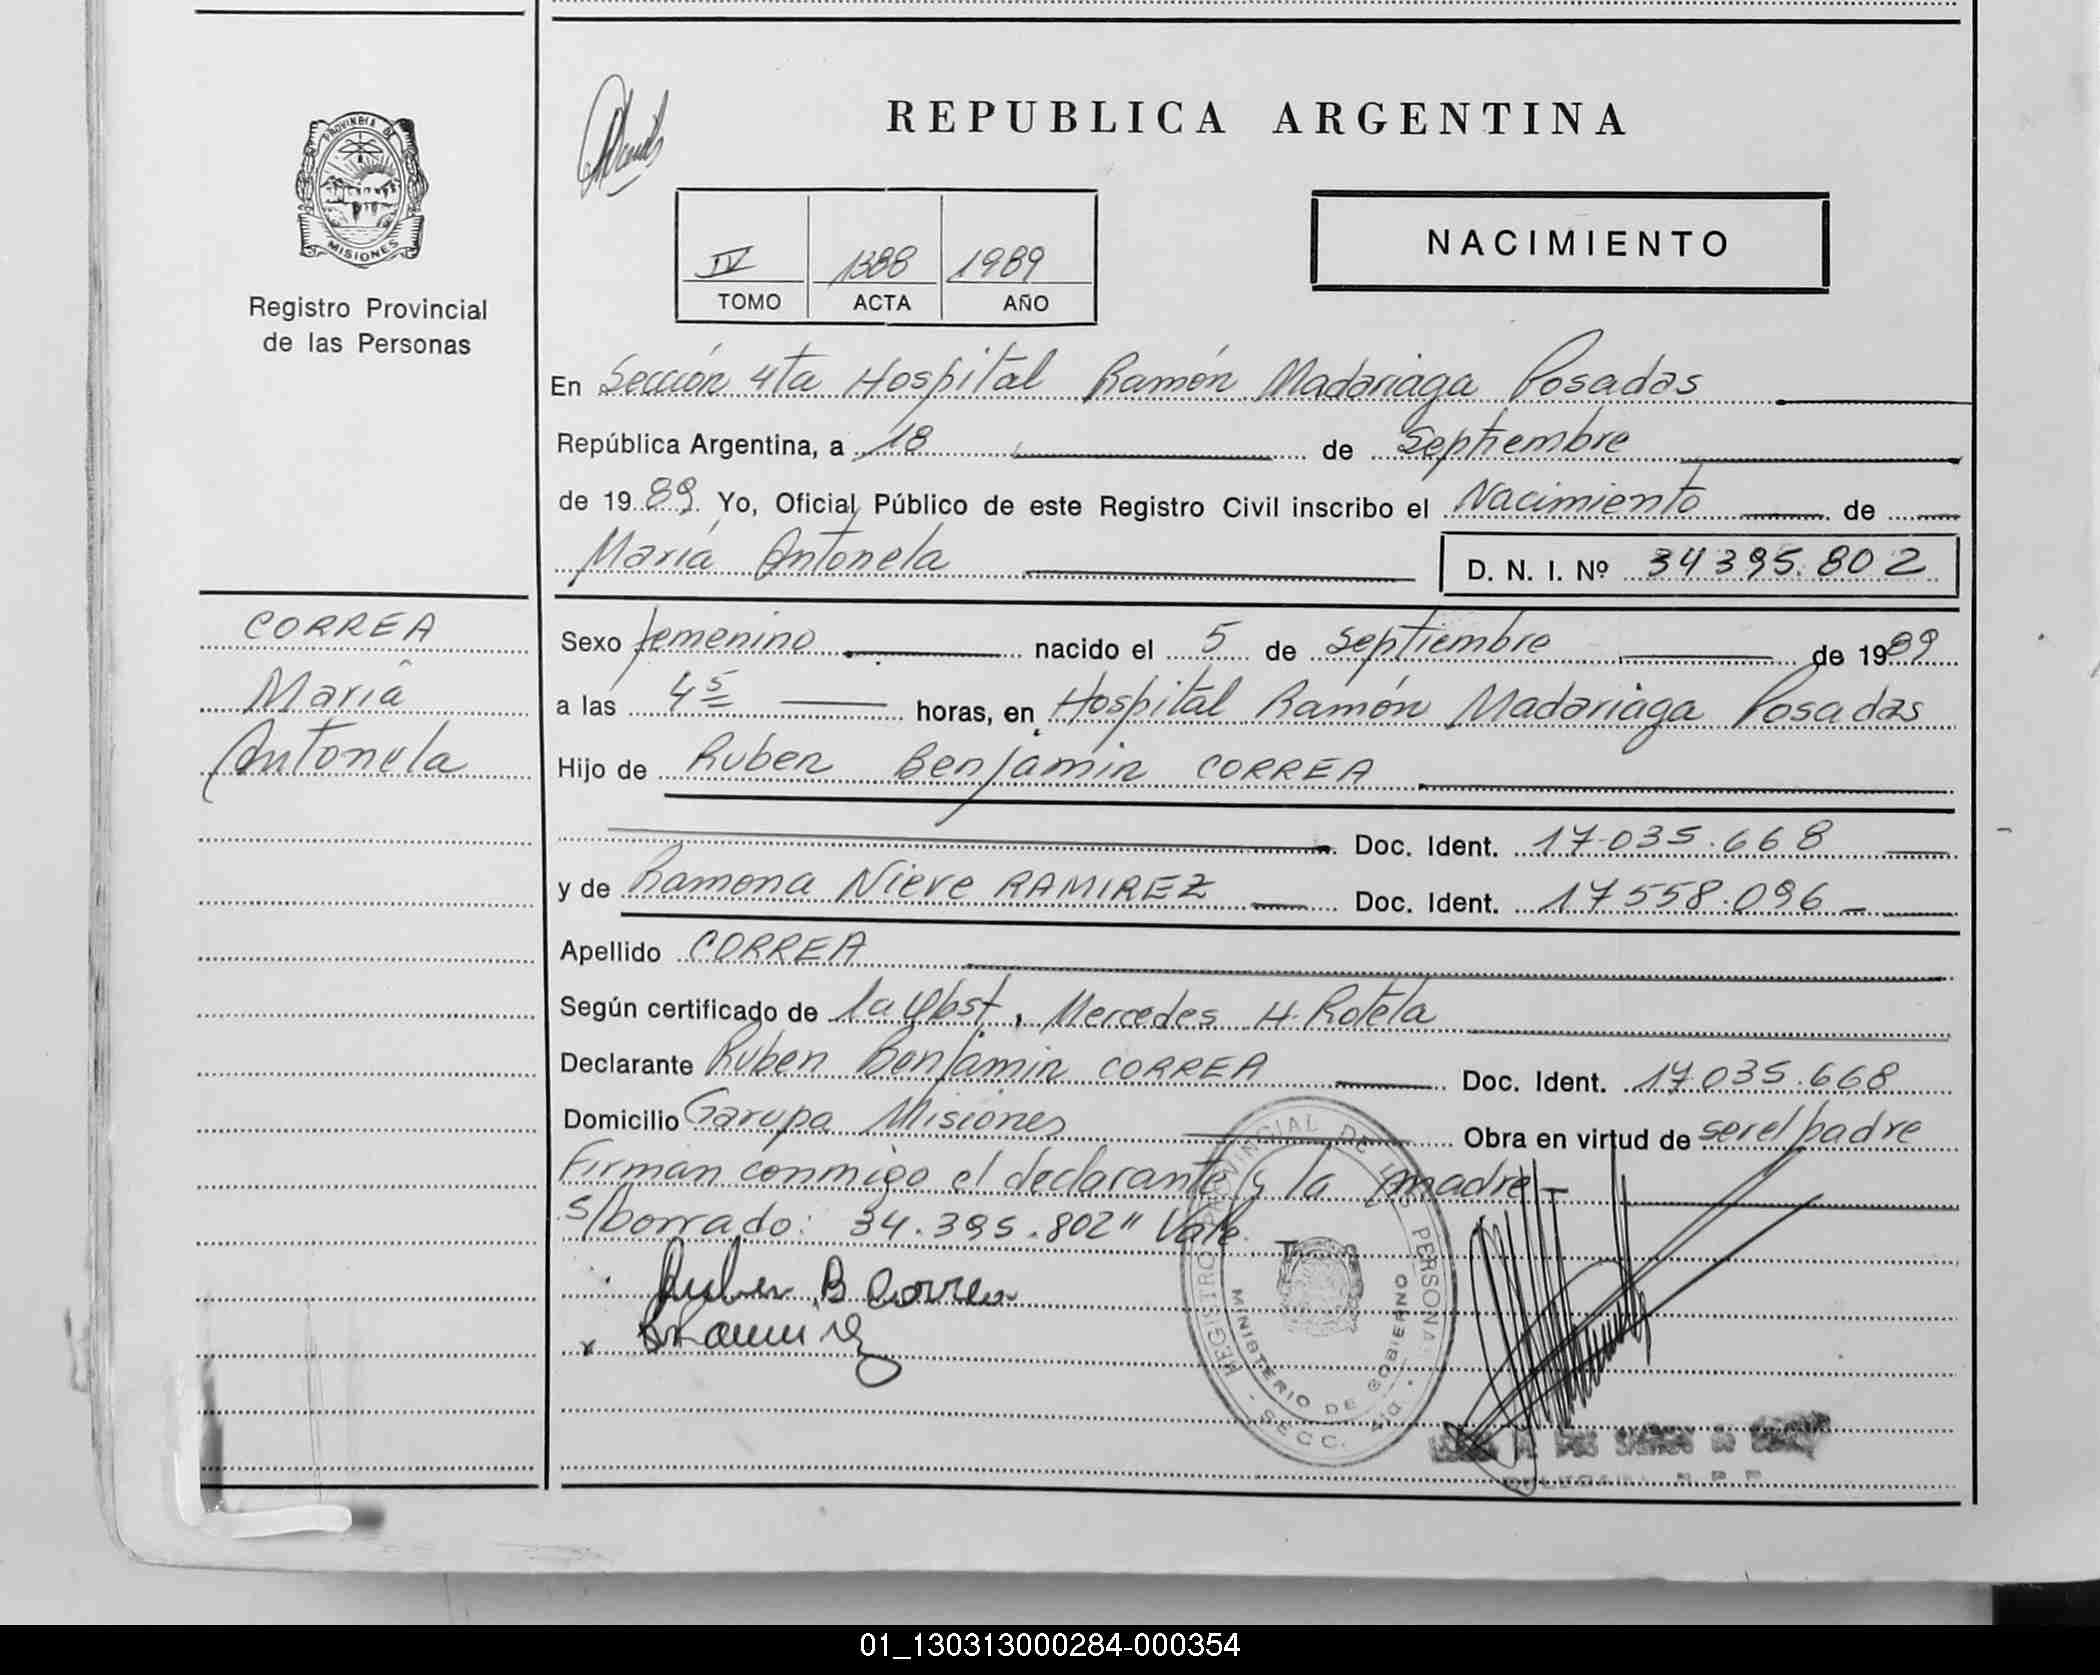 REPUBLICA ARGENTINA
PROVINCIA DE
MISIONES
Registro Provincial
de las Personas
IV 1388 1989
TOMO ACTA AÑO
NACIMIENTO
En Sección 4ta Hospital Ramón Madariaga Posadas
República Argentina, a 18 de Septiembre
de 1989. Yo, Oficial Público de este Registro Civil inscribo el Nacimiento de
María Antonela D. N. I. Nº 34395.802
CORREA
María
Antonela
Sexo femenino nacido el 5 de Septiembre de 1989
a las 4 5 horas, en Hospital Ramón Madariaga Posadas
Hijo de Ruben Benjamin CORREA
Doc. Ident. 17.035.668
y de Ramona Nieve RAMIREZ Doc. Ident. 17558.096
Apellido CORREA
Según certificado de la Obst. Mercedes H. Rotela
Declarante Ruben Benjamin CORREA Doc. Ident. 17035.668
Domicilio Garupa Misiones Obra en virtud de ser el padre
Firman conmigo el declarante y la madre
S/borrado: 34.395.802" Vale.
Ruben B Correa
Ramirez
REGISTRO PROVINCIAL DE LAS PERSONAS
MINISTERIO DE GOBIERNO
SECC. 4ta
01_130313000284-000354